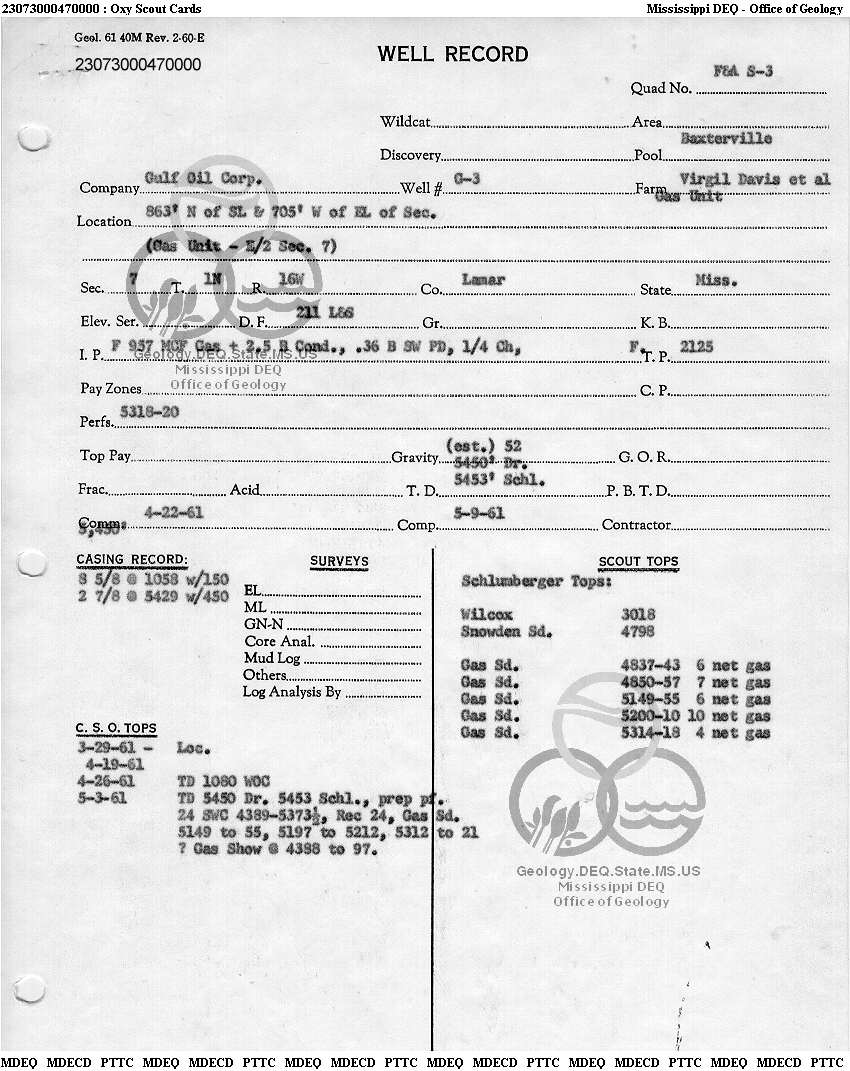 23073000470000 : Oxy Scout Cards Mississippi DEQ - Office of Geology
Geol. 61 40M Rev. 2-60-E
WELL RECORD
23073000470000
F&A S-3
Quad No.
Wildcat Area
Baxterville
Discovery Pool
Company Gulf Oil Corp. Well # G-3 Farm Virgil Davis et al
Gas Unit
Location 863' N of SL & 705' W of EL of Sec.
(Gas Unit - E/2 Sec. 7)
Sec. 7 T. 1N R. 16W Co. Lamar State Miss.
Elev. Ser. D. F. 211 L&S Gr. K. B.
I. P. F 957 MCF Gas + 2.5 B Cond., .36 B SW PD, 1/4 Ch, F. T. P. 2125
Geology.DEQ.State.MS.US
Mississippi DEQ
Office of Geology
Pay Zones C. P.
Perfs. 5318-20
Top Pay Gravity (est.) 52 G. O. R.
5450' Dr.
Frac. Acid T. D. 5453' Schl. P. B. T. D.
Comm. 4-22-61 Comp. 5-9-61 Contractor
5,450'
CASING RECORD: SURVEYS SCOUT TOPS
8 5/8 @ 1058 w/150
2 7/8 @ 5429 w/450
EL
ML
GN-N
Core Anal.
Mud Log
Others
Log Analysis By
Schlumberger Tops:
Wilcox 3018
Snowden Sd. 4798
Gas Sd. 4837-43 6 net gas
Gas Sd. 4850-57 7 net gas
Gas Sd. 5149-55 6 net gas
Gas Sd. 5200-10 10 net gas
Gas Sd. 5314-18 4 net gas
C. S. O. TOPS
3-29-61 - Loc.
4-19-61
4-26-61 TD 1080 WOC
5-3-61 TD 5450 Dr. 5453 Schl., prep pf.
24 SWC 4389-5373½, Rec 24, Gas Sd.
5149 to 55, 5197 to 5212, 5312 to 21
? Gas Show @ 4388 to 97.
Geology.DEQ.State.MS.US
Mississippi DEQ
Office of Geology
MDEQ MDECD PTTC MDEQ MDECD PTTC MDEQ MDECD PTTC MDEQ MDECD PTTC MDEQ MDECD PTTC MDEQ MDECD PTTC